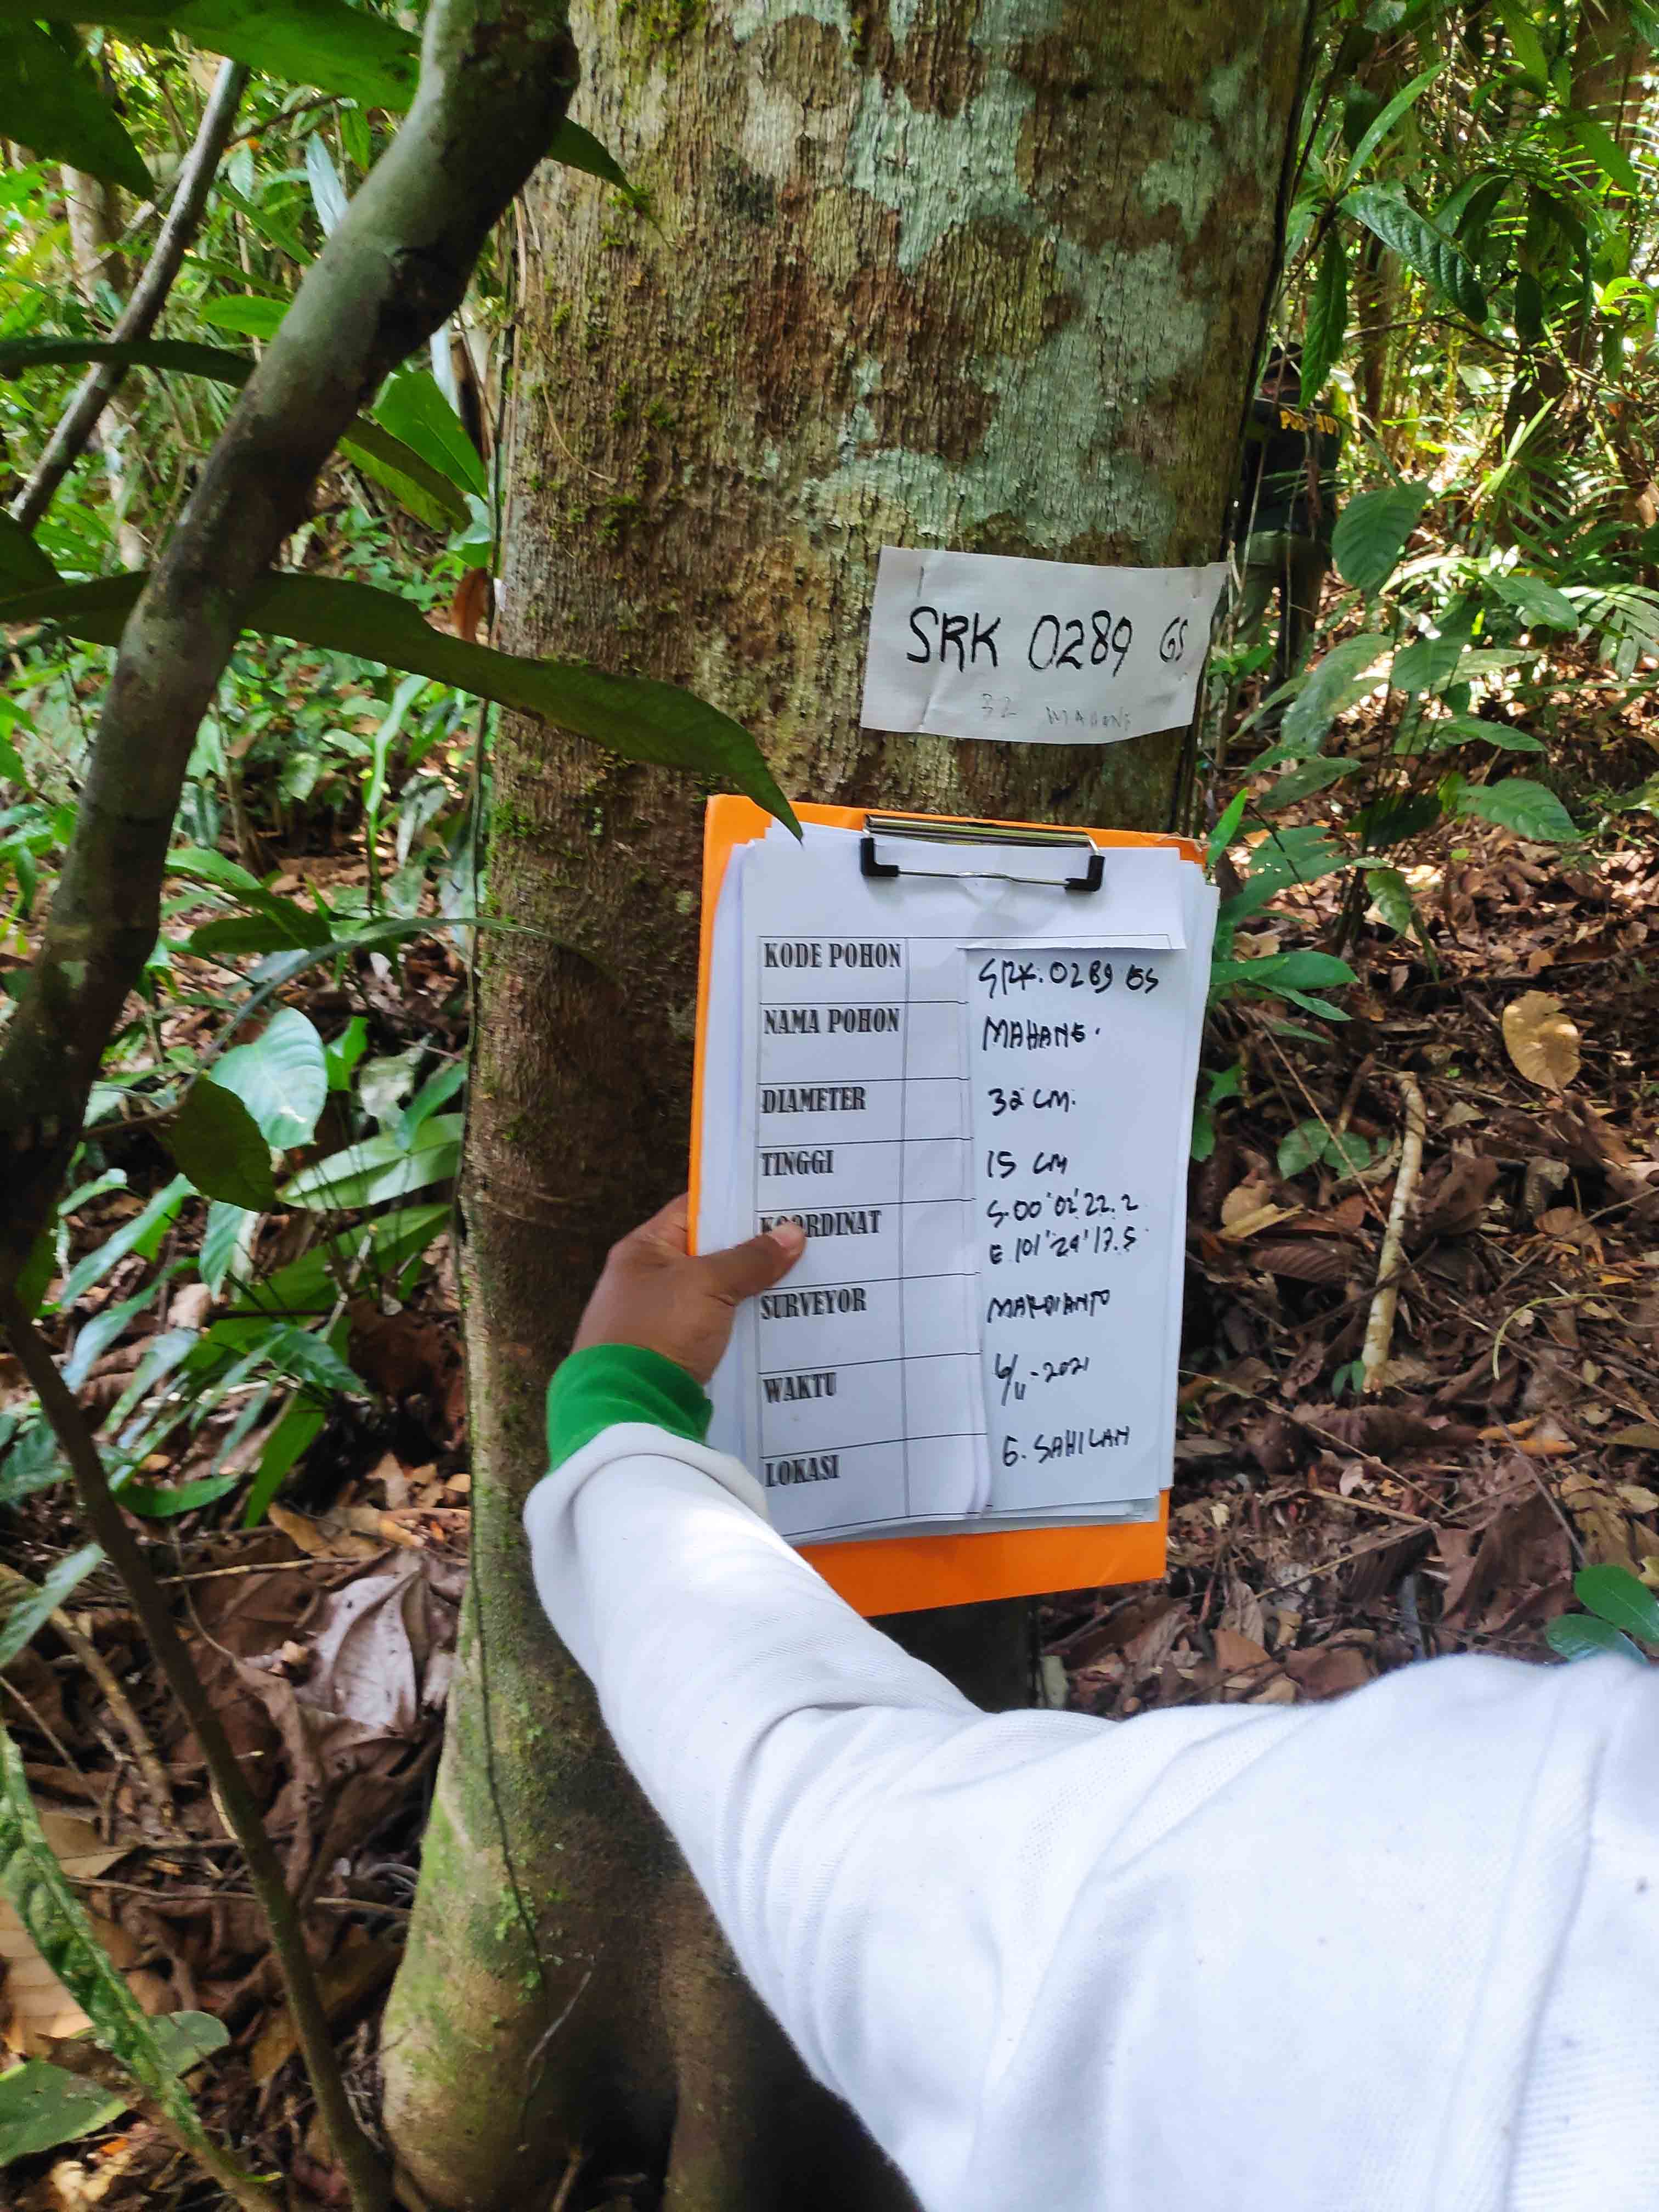 SRK 0289 GS
32 MAHANG
KODE POHON SRK. 0289 GS
NAMA POHON MAHANG.
DIAMETER 32 CM.
TINGGI 15 CM
KOORDINAT S.00°02'22.2
E 101°29'17.5
SURVEYOR MARDIANTO
WAKTU 4/11-2021
LOKASI G. SAHILAN